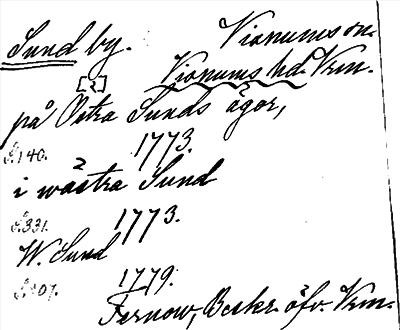 Sund by. Visnums sn.
[2] Visnums hd. Vrm.
på Östra Sunds ägor,
S. 140. 1773.
i wästra Sund
S. 331. 1773.
W. Sund
1779.
Fernow, Beskr. öfv. Vrm.